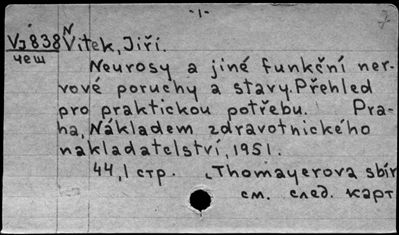 -1-
Vj838 Vítek, Jiří.
чеш
Neurosy a jiné funkční ner-
vové poruchy a stavy. Přehled
pro praktickou potřebu. Pra-
ha, Nákladem zdravotnického
nakladatelství, 1951.
44,1 стр. (Thomayerova sbír
см. след. карт